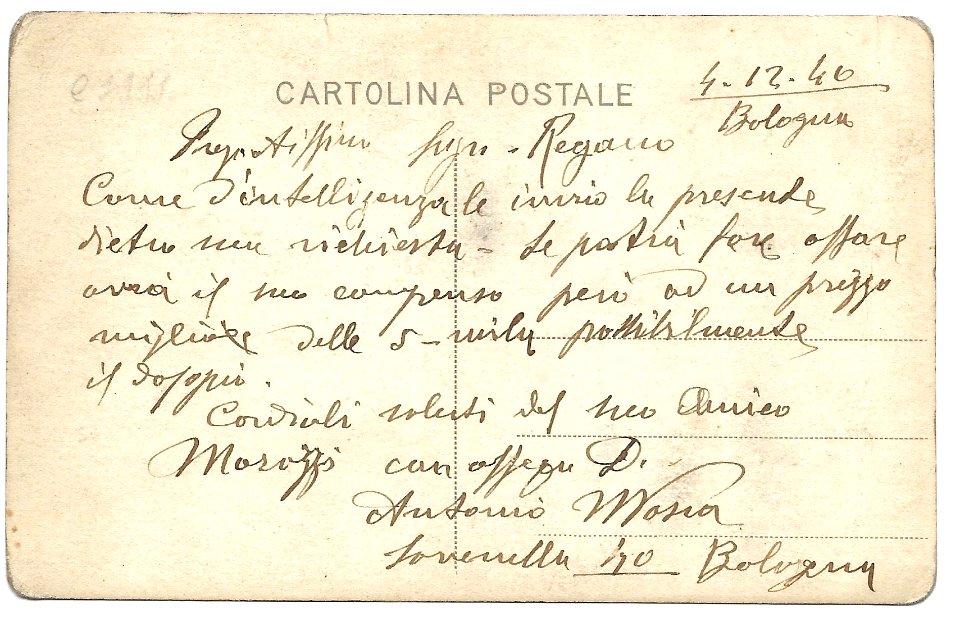 CARTOLINA POSTALE
4.12.40
Bologna
Sign. Regano
Come d'intelligenza le invio la presente
dietro sua richiesta - Se potrà fare affare
avrà il suo compenso però ad un prezzo
migliore delle 5 - mila possibilmente
il doppio.
Cordiali saluti dal suo Amico
Marozzi con ossequi D.
Antonio
40 Bologna